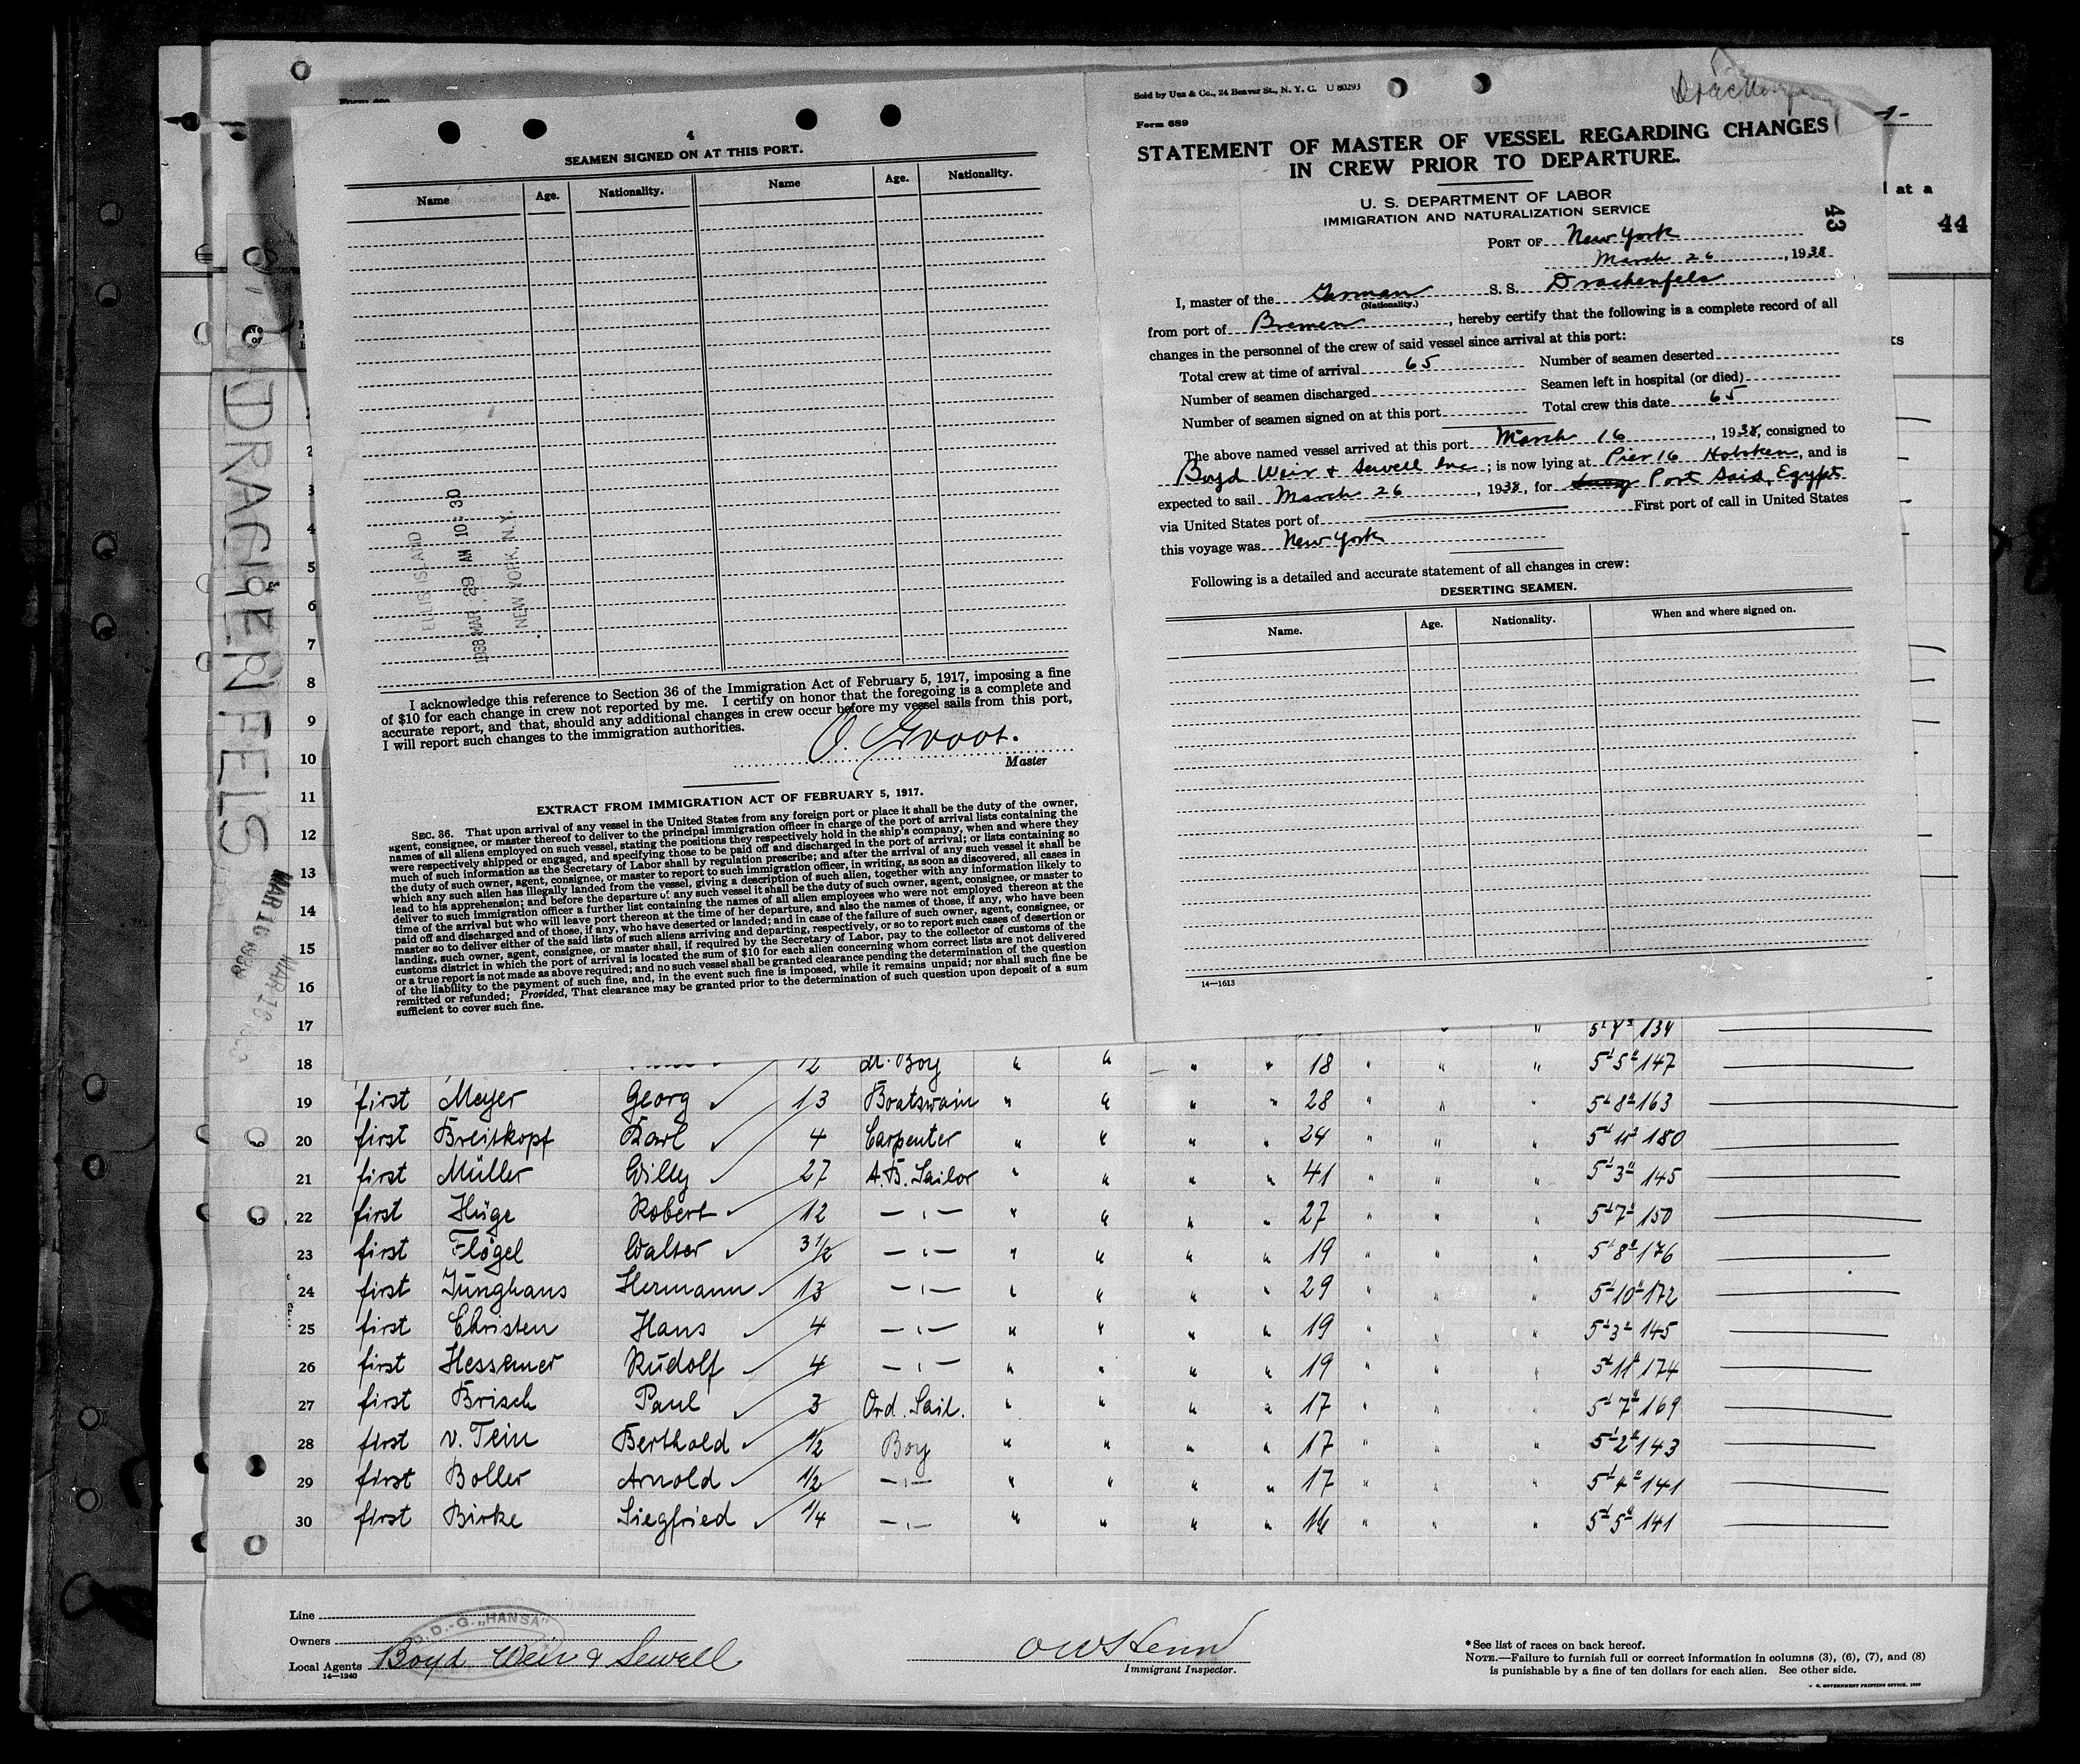 4
SEAMEN SIGNED ON AT THIS PORT.
Name Age. Nationality. Name Age. Nationality.
ELLIS ISLAND
1938 MAR 29 AM 10:30
NEW YORK, N.Y.
I acknowledge this reference to Section 36 of the Immigration Act of February 5, 1917, imposing a fine
of $10 for each change in crew not reported by me. I certify on honor that the foregoing is a complete and
accurate report, and that, should any additional changes in crew occur before my vessel sails from this port,
I will report such changes to the immigration authorities.
O. Groot.
Master
EXTRACT FROM IMMIGRATION ACT OF FEBRUARY 5, 1917.
SEC. 36. That upon arrival of any vessel in the United States from any foreign port or place it shall be the duty of the owner,
agent, consignee, or master thereof to deliver to the principal immigration officer in charge of the port of arrival lists containing the
names of all aliens employed on such vessel, stating the positions they respectively hold in the ship's company, when and where they
were respectively shipped or engaged, and specifying those to be paid off and discharged in the port of arrival; or lists containing so
much of such information as the Secretary of Labor shall by regulation prescribe; and after the arrival of any such vessel it shall be
the duty of such owner, agent, consignee, or master to report to such immigration officer, in writing, as soon as discovered, all cases in
which any such alien has illegally landed from the vessel, giving a description of such alien, together with any information likely to
lead to his apprehension; and before the departure of any such vessel it shall be the duty of such owner, agent, consignee, or master to
deliver to such immigration officer a further list containing the names of all alien employees who were not employed thereon at the
time of the arrival but who will leave port thereon at the time of her departure, and also the names of those, if any, who have been
paid off and discharged and of those, if any, who have deserted or landed; and in case of the failure of such owner, agent, consignee, or
master so to deliver either of the said lists of such aliens arriving and departing, respectively, or so to report such cases of desertion or
landing, such owner, agent, consignee, or master shall, if required by the Secretary of Labor, pay to the collector of customs of the
customs district in which the port of arrival is located the sum of $10 for each alien concerning whom correct lists are not delivered
or a true report is not made as above required; and no such vessel shall be granted clearance pending the determination of the question
of the liability to the payment of such fine, and, in the event such fine is imposed, while it remains unpaid; nor shall such fine be
remitted or refunded; Provided, That clearance may be granted prior to the determination of such question upon deposit of a sum
sufficient to cover such fine.
Sold by Unz & Co., 24 Beaver St., N. Y. C. U 80293
Form 689
STATEMENT OF MASTER OF VESSEL REGARDING CHANGES
IN CREW PRIOR TO DEPARTURE.
U. S. DEPARTMENT OF LABOR
IMMIGRATION AND NATURALIZATION SERVICE
43
44
at a
PORT OF New York
March 26, 1938
I, master of the German S. S. Drachenfels
(Nationality.)
from port of Bremen, hereby certify that the following is a complete record of all
changes in the personnel of the crew of said vessel since arrival at this port:
Total crew at time of arrival 65 Number of seamen deserted
Number of seamen discharged Seamen left in hospital (or died)
Number of seamen signed on at this port Total crew this date 65
The above named vessel arrived at this port March 16, 1938, consigned to
Boyd Weir & Sewell Inc; is now lying at Pier 16 Hoboken, and is
expected to sail March 26, 1938, for Port Said, Egypt
via United States port of First port of call in United States
this voyage was New York
Following is a detailed and accurate statement of all changes in crew:
DESERTING SEAMEN.
Name. Age. Nationality. When and where signed on.
14—1613
DRACHENFELS
MAR 16 1938
2
3
4
5
6
7
8
9
10
11
12
13
14
15
16
17 134
18 Boy " " " " 18 " " " 5' 5" 147
19 first Meyer Georg 13 Boatswain " " " " 28 " " " 5' 8" 163
20 first Breitkopf Karl 4 Carpenter " " " " 24 " " " 5' 11" 180
21 first Müller Willy 27 A.B. Sailor " " " " 41 " " " 5' 3" 145
22 first Hüge Robert 12 — " — " " " " 27 " " " 5' 7" 150
23 first Flögel Walter 3 1/2 — " — " " " " 19 " " " 5' 8" 176
24 first Junghans Hermann 13 — " — " " " " 29 " " " 5' 10" 172
25 first Christen Hans 4 — " — " " " " 19 " " " 5' 3" 145
26 first Hessemer Rudolf 4 — " — " " " " 19 " " " 5' 11" 174
27 first Brisch Paul 3 Ord. Sail. " " " " 17 " " " 5' 7" 169
28 first v. Tein Berthold 1/2 Boy " " " " 17 " " " 5' 2" 143
29 first Boller Arnold 1/2 — " — " " " " 17 " " " 5' 4" 141
30 first Birke Siegfried 1/4 — " — " " " " 16 " " " 5' 5" 141
Line
Owners D. D.-G. „HANSA"
Local Agents Boyd Weir & Sewell
14—1240
Immigrant Inspector.
*See list of races on back hereof.
NOTE.—Failure to furnish full or correct information in columns (3), (6), (7), and (8)
is punishable by a fine of ten dollars for each alien. See other side.